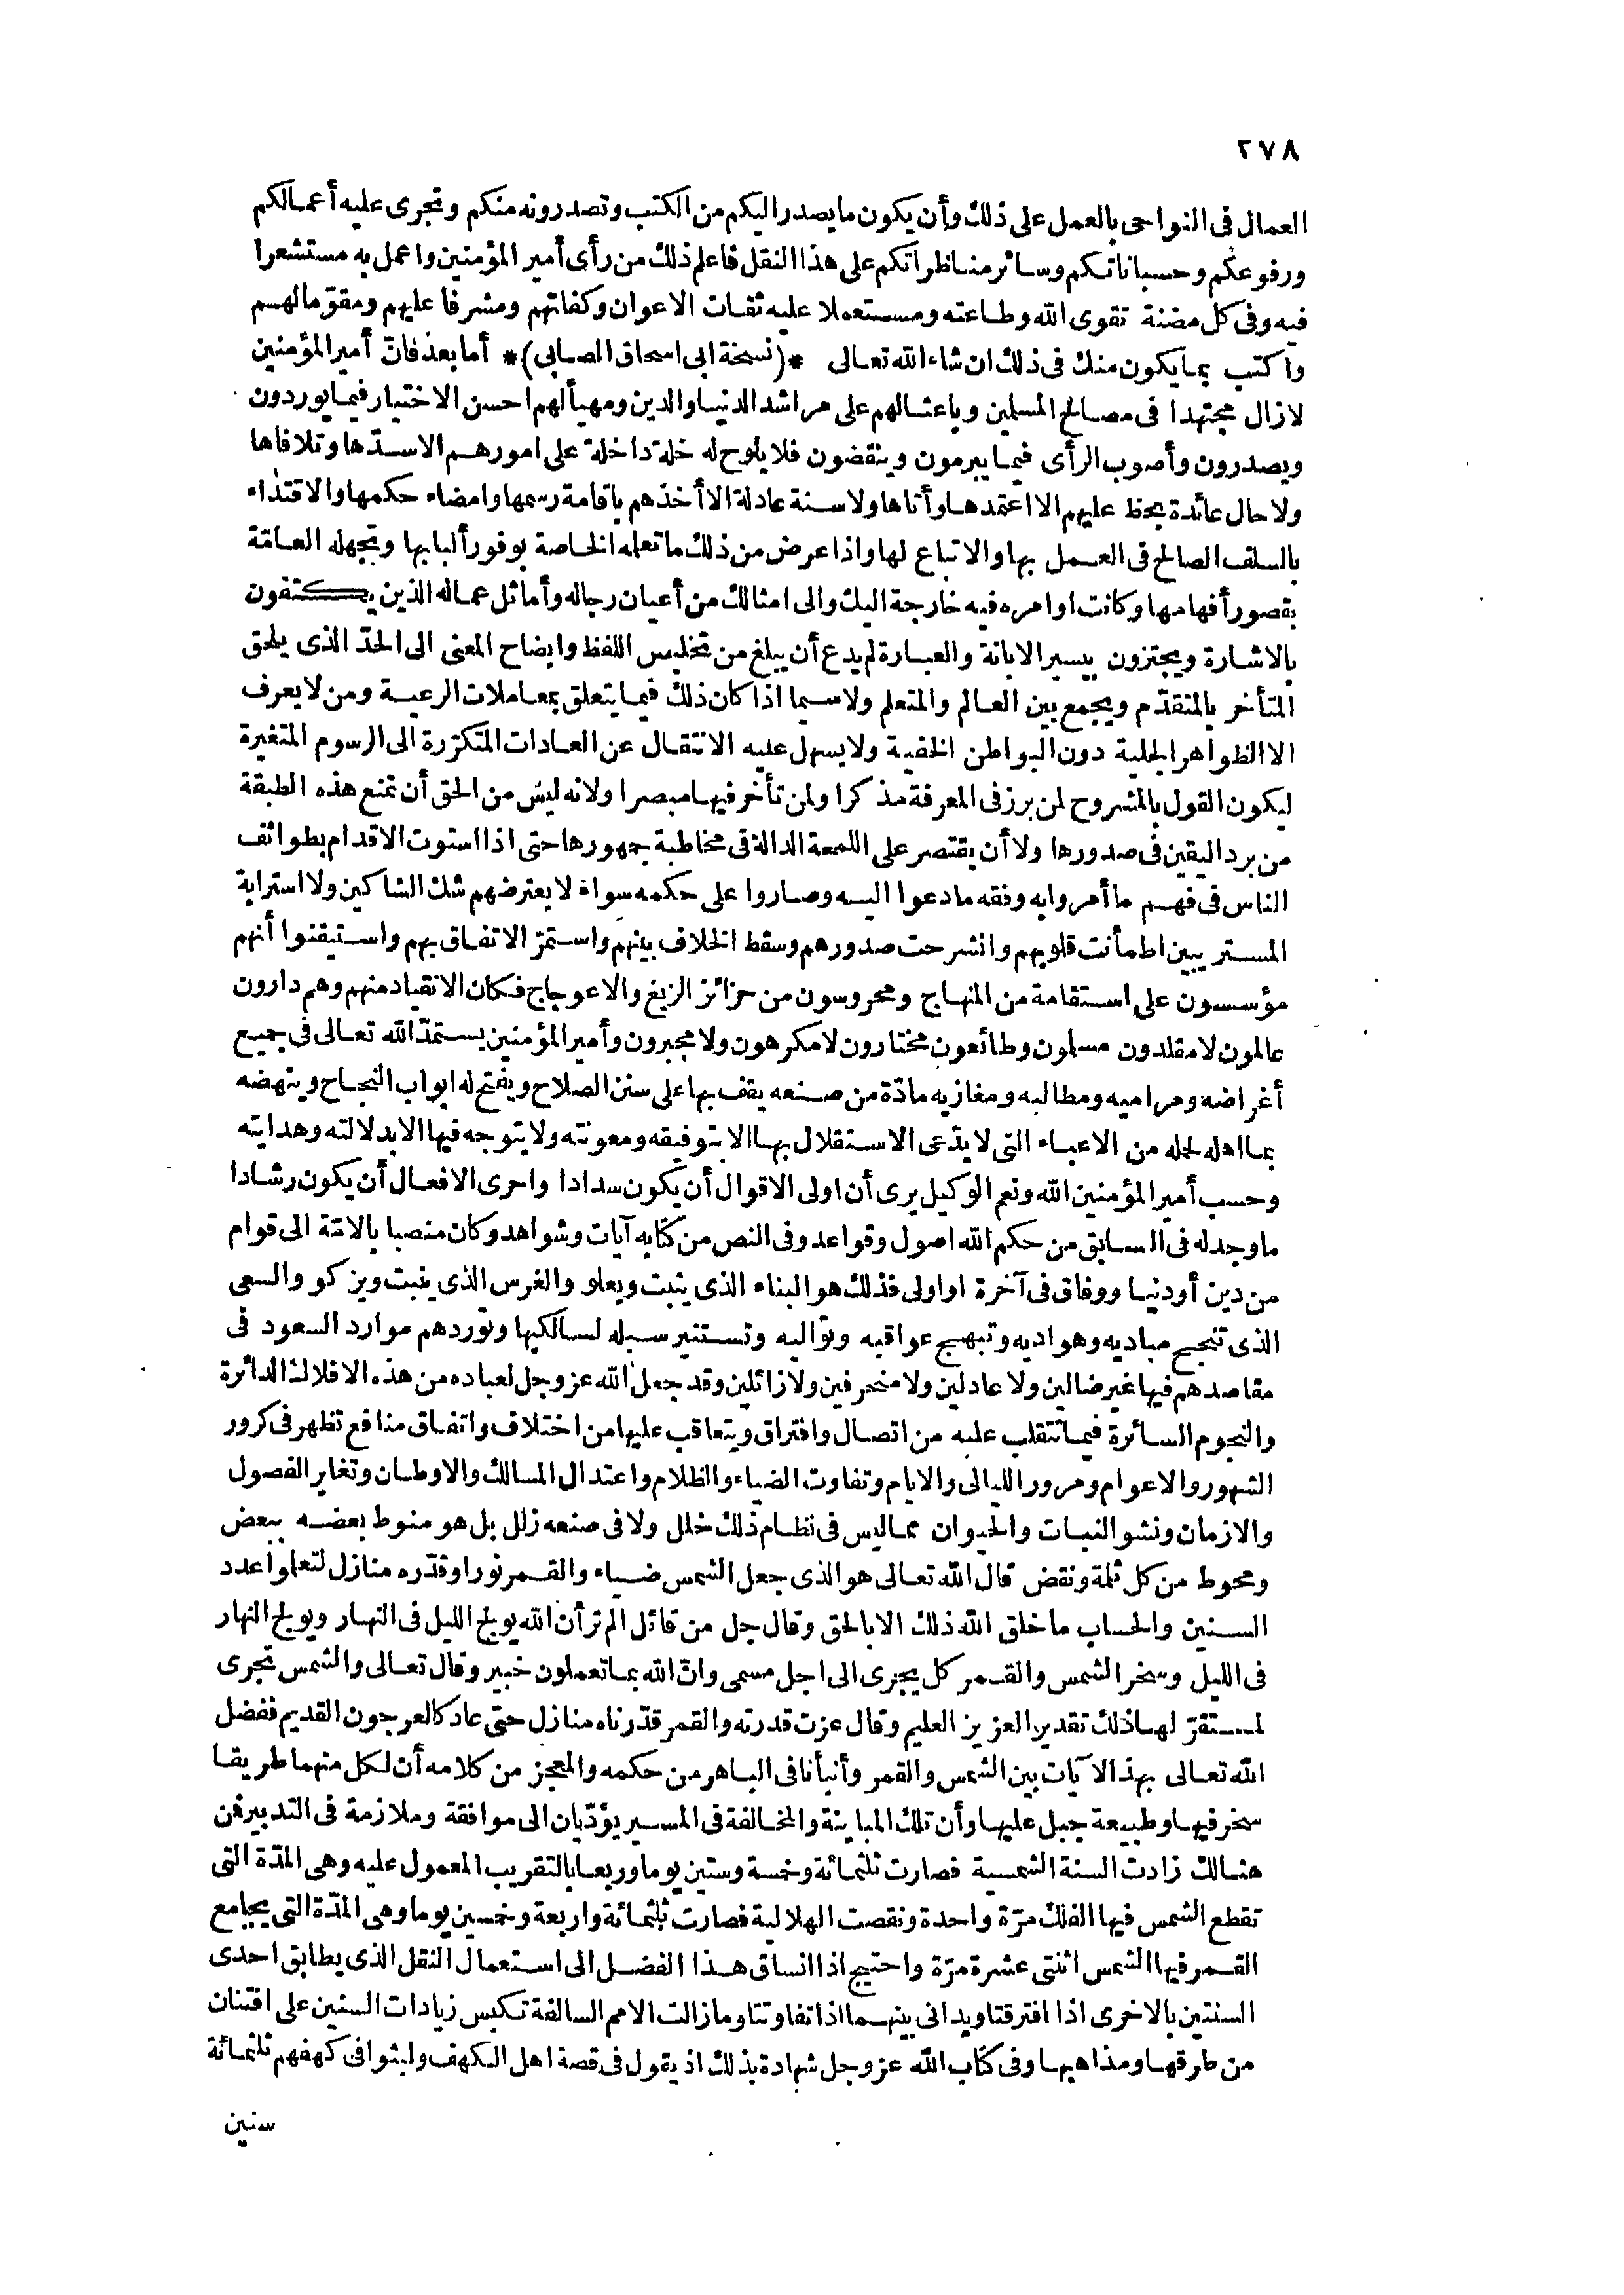 ٢٧٨
العمال فى النواحى بالعمل على ذلك وأن يكون ما يصدر اليكم من الكتب وتصدرونه منكم وتجرى عليه أعمالكم
ورفوعكم وحسباناتكم وسائر مناظراتكم على هذا النقل فاعلم ذلك من رأى أمير المؤمنين واعمل به مستشعرا
فيه وفى كل مضنة تقوى الله وطاعته ومستعملا عليه ثقات الاعوان وكفاتهم ومشرفا عليهم ومقوّما لهم
واكتب بما يكون منك فى ذلك ان شاء الله تعالى *(نسخة ابى اسحاق الصابى)* أما بعد فانّ أمير المؤمنين
لازال مجتهدا فى مصالح المسلمين وباعثا لهم على مراشد الدنيا والدين ومهيأ لهم احسن الاختيار فيما يوردون
ويصدرون وأصوب الرأى فيما يبرمون وينقضون فلا يلوح له خلة داخلة على امورهم الا سدّها وتلافاها
ولا حال عائدة بحظ عليهم الا اعتمدها وأتاها ولا سنة عادلة الا أخذهم باقامة رسمها وامضاء حكمها والاقتداء
بالسلف الصالح فى العمل بها والاتباع لها واذا عرض من ذلك ما تعلمه الخاصة بوفور ألبابها وتجهله العامّة
بقصور أفهامها وكانت اوامره فيه خارجة اليك والى امثالك من أعيان رجاله وأماثل عماله الذين يكتفون
بالاشارة ويجتزون بيسير الابانة والعبارة لم يدع أن يبلغ من تخليص اللفظ وايضاح المعنى الى الحدّ الذى يلحق
المتأخر بالمتقدّم ويجمع بين العالم والمتعلم ولا سيما اذا كان ذلك فيما يتعلق بمعاملات الرعية ومن لا يعرف
الا الظواهر الجلية دون البواطن الخفية ولا يسهل عليه الانتقال عن العادات المتكرّرة الى الرسوم المتغيرة
ليكون القول بالمشروح لمن برز فى المعرفة مذكرا ولمن تأخر فيها مبصرا ولانه ليس من الحق أن تمنع هذه الطبقة
من برد اليقين فى صدورها ولا أن يقتصر على اللمعة الدالة فى مخاطبة جمهورها حتى اذا استوت الاقدام بطوائف
الناس فى فهم ما أمروا به وفقه ما دعوا اليه وصاروا على حكمه سواء لا يعترضهم شك الشاكين ولا استرابة
المستريبين اطمأنت قلوبهم وانشرحت صدورهم وسقط الخلاف بينهم واستمرّ الاتفاق بهم واستيقنوا أنهم
مؤسسون على استقامة من المنهاج ومحروسون من حزائز الزيغ والاعوجاج فكان الانقياد منهم وهم دارون
عالمون لا مقلدون مسلمون وطائعون مختارون لا مكرهون ولا مجبرون وأمير المؤمنين يستمدّ الله تعالى فى جميع
أغراضه ومراميه ومطالبه ومغازيه مادّة من صنعه يقف بها على سنن الصلاح ويفتح له ابواب النجاح وينهضه
بما اهله لحله من الاعباء التى لا يدّعى الاستقلال بها الا بتوفيقه ومعونته ولا يتوجه فيها الا بدلالته وهدايته
وحسب أمير المؤمنين الله ونعم الوكيل يرى أن اولى الاقوال أن يكون سدادا واحرى الافعال أن يكون رشادا
ما وجد له فى السابق من حكم الله اصول وقواعد وفى النص من كتابه آيات وشواهد وكان منصبا بالامّة الى قوام
من دين أو دنيا ووفاق فى آخرة او اولى فذلك هو البناء الذى يثبت ويعلو والغرس الذى ينبت ويزكو والسعى
الذى تنجح مباديه وهواديه وتبهج عواقبه وتواليه وتستنير سبله لسالكيها وتوردهم موارد السعود فى
مقاصدهم فيها غير ضالين ولا عادلين ولا منحرفين ولا زائلين وقد جعل الله عز وجل لعباده من هذه الافلاك الدائرة
والنجوم السائرة فيما تتقلب عليه من اتصال وافتراق ويتعاقب عليها من اختلاف واتفاق منافع تظهر فى كرور
الشهور والاعوام ومرور الليالى والايام وتفاوت الضياء والظلام واعتدال المسالك والاوطان وتغاير الفصول
والازمان ونشو النبات والحيوان مما ليس فى نظام ذلك خلل ولا فى صنعه زلل بل هو منوط بعضه ببعض
ومحوط من كل ثلمة ونقض قال الله تعالى هو الذى جعل الشمس ضياء والقمر نورا وقدّره منازل لتعلموا عدد
السنين والحساب ما خلق الله ذلك الا بالحق وقال جل من قائل الم تر أن الله يولج الليل فى النهار ويولج النهار
فى الليل وسخر الشمس والقمر كل يجرى الى اجل مسمى وانّ الله بما تعملون خبير وقال تعالى والشمس تجرى
لمستقرّ لها ذلك تقدير العزيز العليم وقال عزت قدرته والقمر قدّرناه منازل حتى عاد كالعرجون القديم ففضل
الله تعالى بهذ الآيات بين الشمس والقمر وأنبأنا فى الباهر من حكمه والمعجز من كلامه أن لكل منهما طريقا
سخر فيها وطبيعة جبل عليها وأن تلك المباينة والمخالفة فى المسير يؤدّيان الى موافقة وملازمة فى التدبير فمن
هنالك زادت السنة الشمسية فصارت ثلثمائة وخمسة وستين يوما وربعا بالتقريب المعمول عليه وهى المدّة التى
تقطع الشمس فيها الفلك مرّة واحدة ونقصت الهلالية فصارت ثلثمائة واربعة وخمسين يوما وهى المدّة التى يجامع
القمر فيها الشمس اثنتى عشرة مرّة واحتيج اذا انساق هذا الفضل الى استعمال النقل الذى يطابق احدى
السنتين بالاخرى اذا افترقتا ويدانى بينهما اذا تفاوتتا وما زالت الامم السالفة تكبس زيادات السنين على افتنان
من طرقها ومذاهبها وفى كتاب الله عز وجل شهادة بذلك اذ يقول فى قصة اهل الكهف ولبثوا فى كهفهم ثلثمائة
سنين